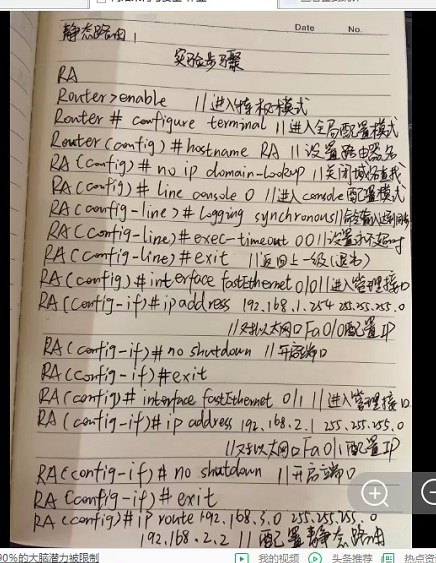 Date No.
静态路由1
实验步骤
RA
Router>enable //进入特权模式
Router # configure terminal //进入全局配置模式
Router (config) # hostname RA //设置路由器名
RA (config) # no ip domain-lookup //关闭域名查找
RA (config) # line console 0 //进入console配置模式
RA (config-line) # logging synchronous //命令输入达到同步
RA (config-line) # exec-timeout 0 0 //设置永不延时
RA (config-line) # exit //返回上一级(退出)
RA (config) # interface fastEthernet 0/0 //进入管理接口
RA (config-if) # ip address 192.168.1.254 255.255.255.0
//对以太网口Fa0/0配置IP
RA (config-if) # no shutdown //开启端口
RA (config-if) # exit
RA (config) # interface fastEthernet 0/1 //进入管理接口
RA (config-if) # ip address 192.168.2.1 255.255.255.0
//对以太网口Fa0/1配置IP
RA (config-if) # no shutdown //开启端口
RA (config-if) # exit
RA (config) # ip route 192.168.3.0 255.255.255.0
192.168.2.2 //配置静态路由
90%的大脑潜力被限制 我的视频 头条推荐 热点资